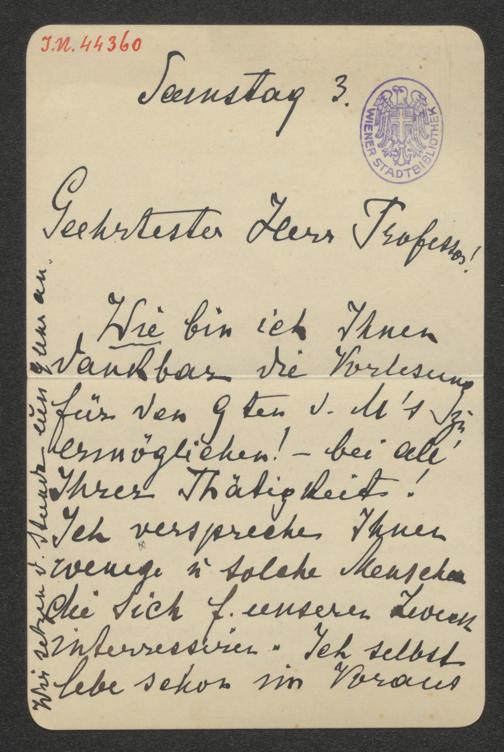 I.N. 44360
Samstag 3.
WIENER STADTBIBLIOTHEK
Geehrtester Herr Professor!
Wie bin ich Ihnen
dankbar die Vorlesung
für den 9ten d. M's zu
ermöglichen! – bei all'
Ihrer Thätigkeit!
Ich verspreche Ihnen
wenige u solche Menschen
die sich f. unseren Zweck
interressiren. Ich selbst
lebe schon im Voraus
Wir setzen d. Stunde um 9 Uhr an.